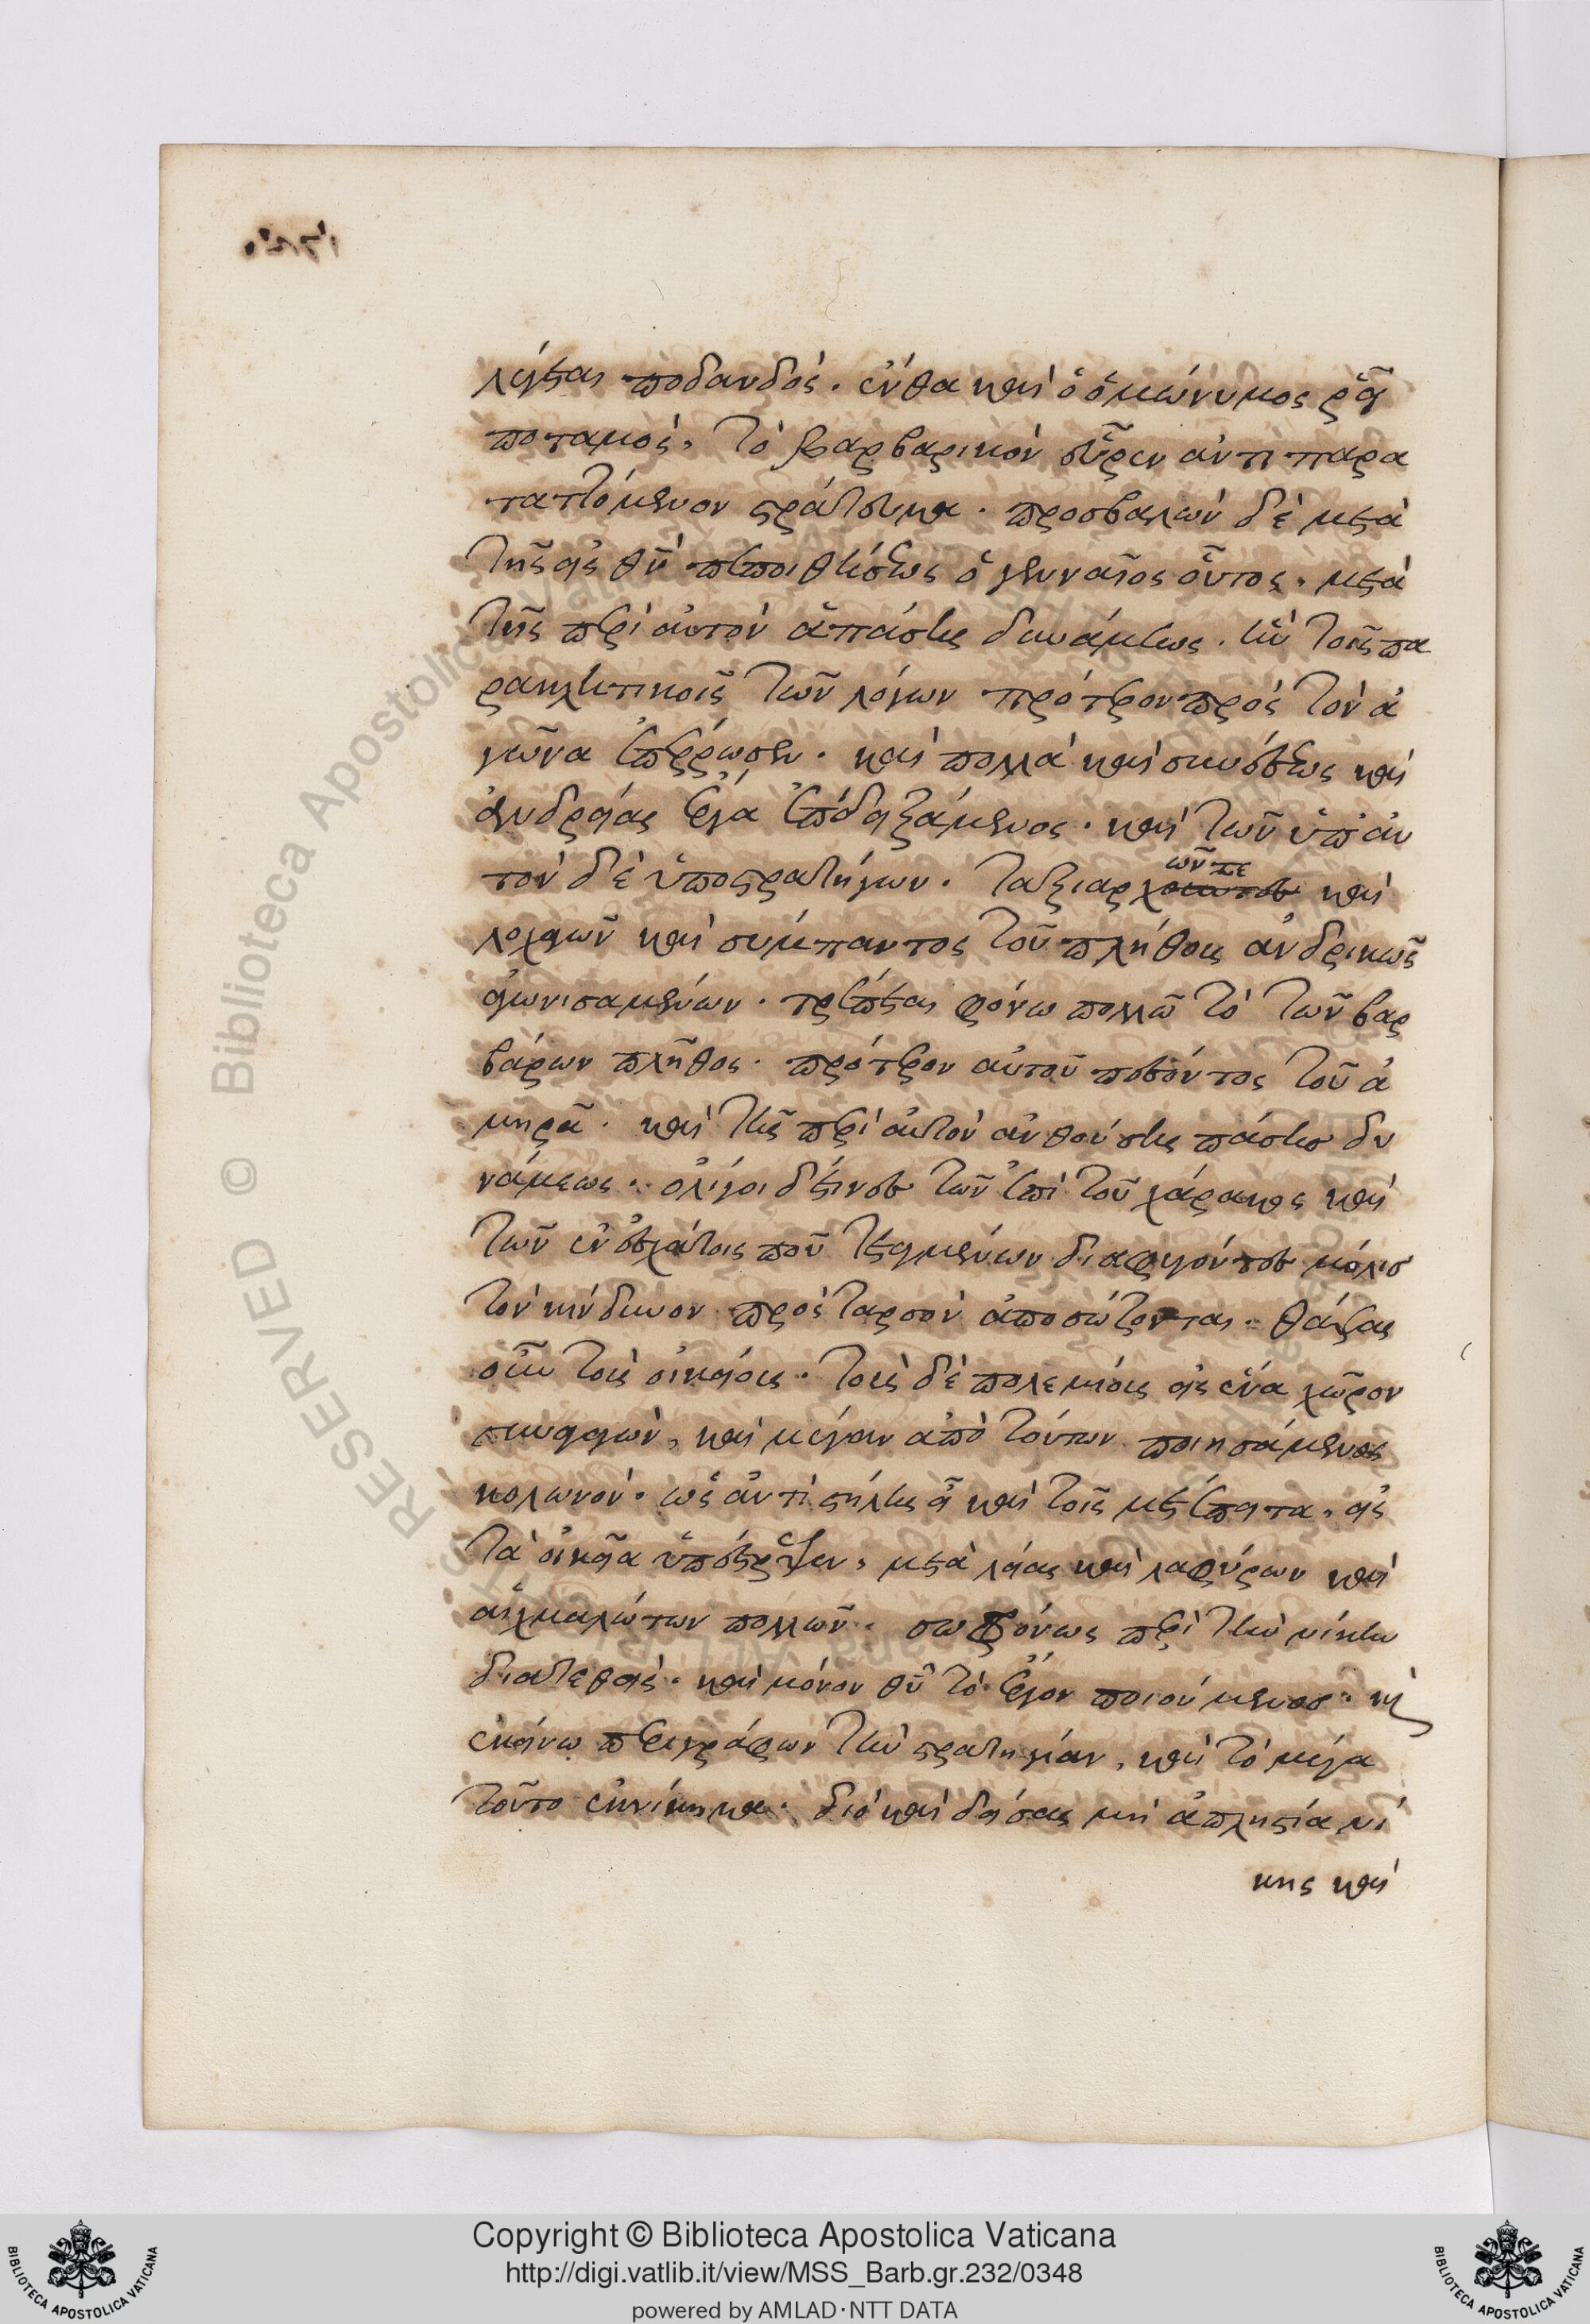 λέγεται ποδανδός. ἔνθα καὶ ὁ ὁμώνυμος ῥεῖ
ποταμὸς, τὸ βαρβαρικὸν εὗρεν ἀντιπαρα
ταττόμενον στράτευμα. προσβαλὼν δὲ μετὰ
τῆς εἰς θεὸν πεποιθήσεως ὁ γενναῖος οὗτος, μετὰ
τῆς περὶ αὐτὸν ἁπάσης δυνάμεως. ἣν τοῖς πα
ρακλητικοῖς τῶν λόγων πρότερον πρὸς τὸν ἀ
γῶνα ἐπέρρωσεν. καὶ πολλὰ καὶ συνέσεως καὶ
ἀνδρείας ἔργα ἐπιδειξάμενος. καὶ τῶν ὑπ' αὐ
τὸν δὲ ὑποστρατήγων. ταξιαρχῶν τε καὶ
λοχαγῶν καὶ σύμπαντος τοῦ πλήθους ἀνδρικῶς
ἀγωνισαμένων. τρέπεται φόνω πολλῶ τὸ τῶν βαρ
βάρων πλῆθος. πρότερον αὐτοῦ πεσόντος τοῦ ἀ
μηρᾶ. καὶ τῆς περὶ αὐτὸν ἀνθούσης πάσης δυ
νάμεως. ὀλίγοι δέ τινες τῶν ἐπὶ τοῦ χάρακος καὶ
τῶν ἐν ἐσχάτοις που τεταγμένων διαφυγόντες μόλις
τὸν κίνδυνον πρὸς ταρσὸν ἀποσώζονται. θάψας
οὖν τοὺς οἰκείους. τοὺς δὲ πολεμίους εἰς ἕνα χῶρον
συναγαγὼν, καὶ μέγαν ἀπὸ τούτων ποιησάμενος
κολωνὸν. ὡς ἀντὶ στήλης ᾖ καὶ τοῖς μετέπειτα, εἰς
τὰ οἰκεῖα ὑπέστρεψεν, μετὰ λείας καὶ λαφύρων καὶ
αἰχμαλώτων πολλῶν. σωφρόνως περὶ τὴν νίκην
διατεθεὶς. καὶ μόνον θεοῦ τὸ ἔργον ποιούμενος. καὶ
ἐκείνω περιγράφων τὴν στρατηγίαν, καὶ τὸ μέγα
τοῦτο ἐκνίκημα. διὸ καὶ δείσας μὴ ἀπληστία νί
κης καὶ